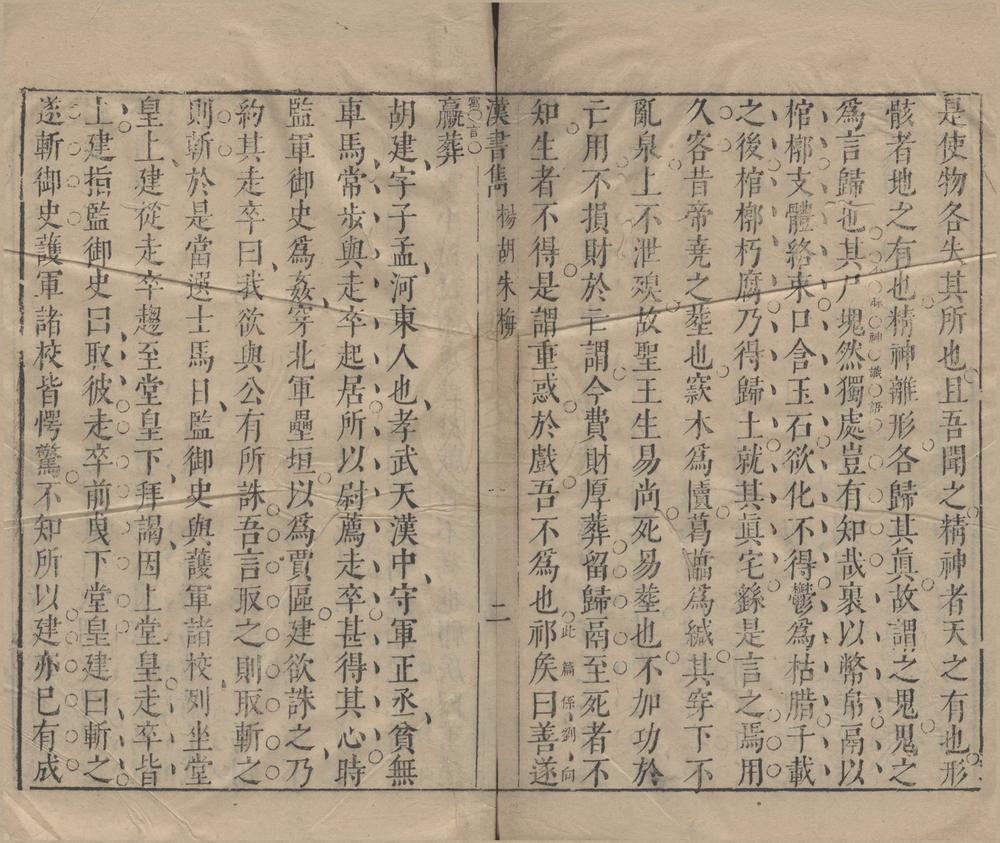 是使物各失其所也且吾聞之精神者天之有也形
骸者地之有也精神離形各歸其眞故謂之鬼鬼之
爲言歸也其尸塊然獨處豈有知哉裹以幣帛鬲以
棺槨支體絡束口含玉石欲化不得鬱爲枯腊千載
之後棺槨朽腐乃得歸土就其眞宅繇是言之焉用
久客昔帝堯之塟也窾木爲匵葛藟爲緘其穿下不
亂泉上不泄殠故聖王生易尚死易塟也不加功於
亡用不損財於亡謂今費財厚葬留歸鬲至死者不
知生者不得是謂重惑於戲吾不爲也祁矦曰善遂
此篇係劉向
寓言
漢書雋 楊胡朱梅 二
臝葬
胡建字子孟河東人也孝武天漢中守軍正丞貧無
車馬常步與走卒起居所以尉薦走卒甚得其心時
監軍御史爲姦穿北軍壘垣以爲賈區建欲誅之乃
約其走卒曰我欲與公有所誅吾言取之則取斬之
則斬於是當選士馬日監御史與護軍諸校列坐堂
皇上建從走卒趨至堂皇下拜謁因上堂皇走卒皆
上建指監御史曰取彼走卒前曳下堂皇建曰斬之
遂斬御史護軍諸校皆愕驚不知所以建亦已有成